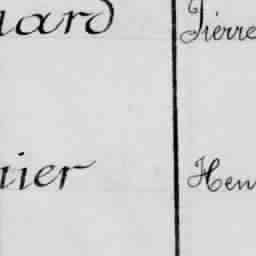 uard Pierre
nier Hen